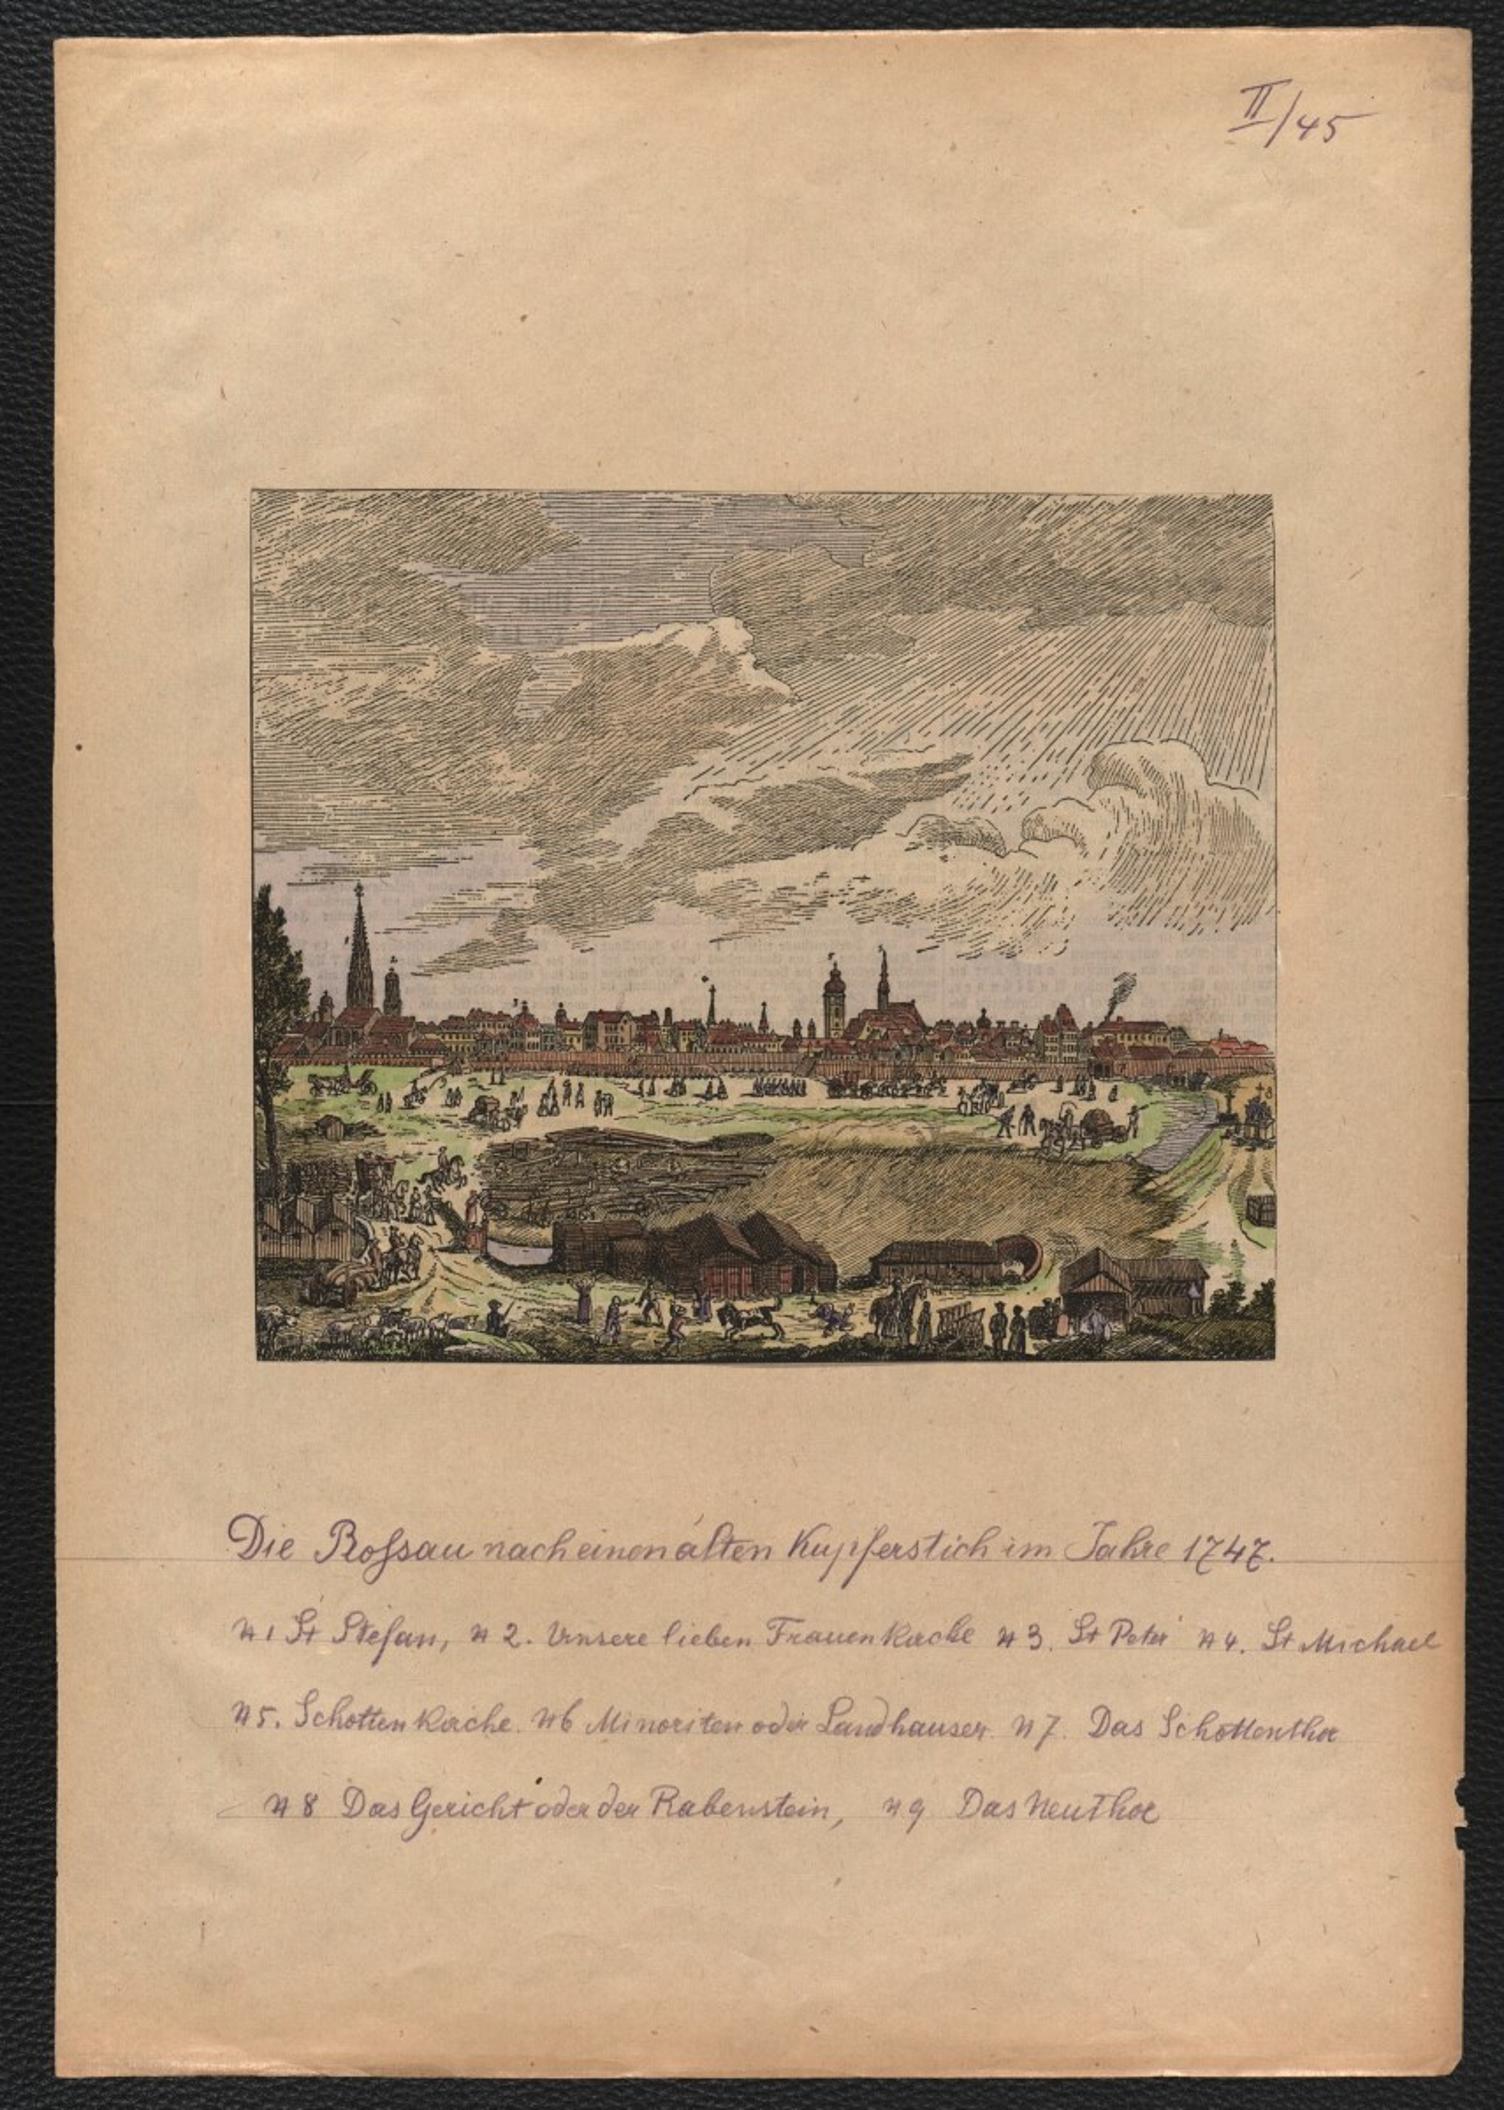 II/45
Die Roſsau nach einen alten Kupferstich im Jahre 1747.
N 1 St Stefan, N 2. Unsere lieben Frauen Kirche N 3. St Peter N 4. St Michael
N 5. Schotten Kirche. N 6 Minoriten oder Landhauser. N 7. Das Schottenthor
N 8 Das Gericht oder der Rabenstein, N 9 Das Neuthor